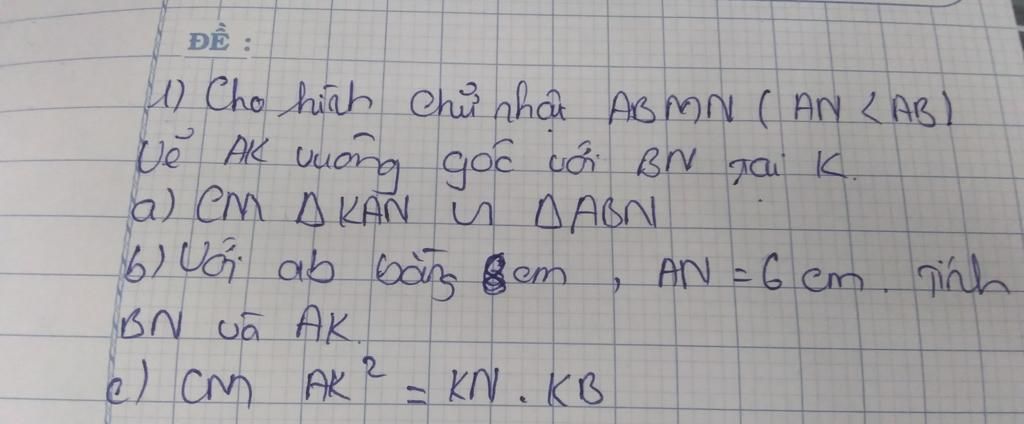 ĐỀ :
1) Cho hình chữ nhật ABMN ( AN < AB )
Vẽ AK vuông góc với BN tại K.
a) CM Δ KAN ∽ Δ ABN
b) Với ab bằng 8cm , AN = 6 cm . Tính
BN và AK.
c) CM AK² = KN . KB